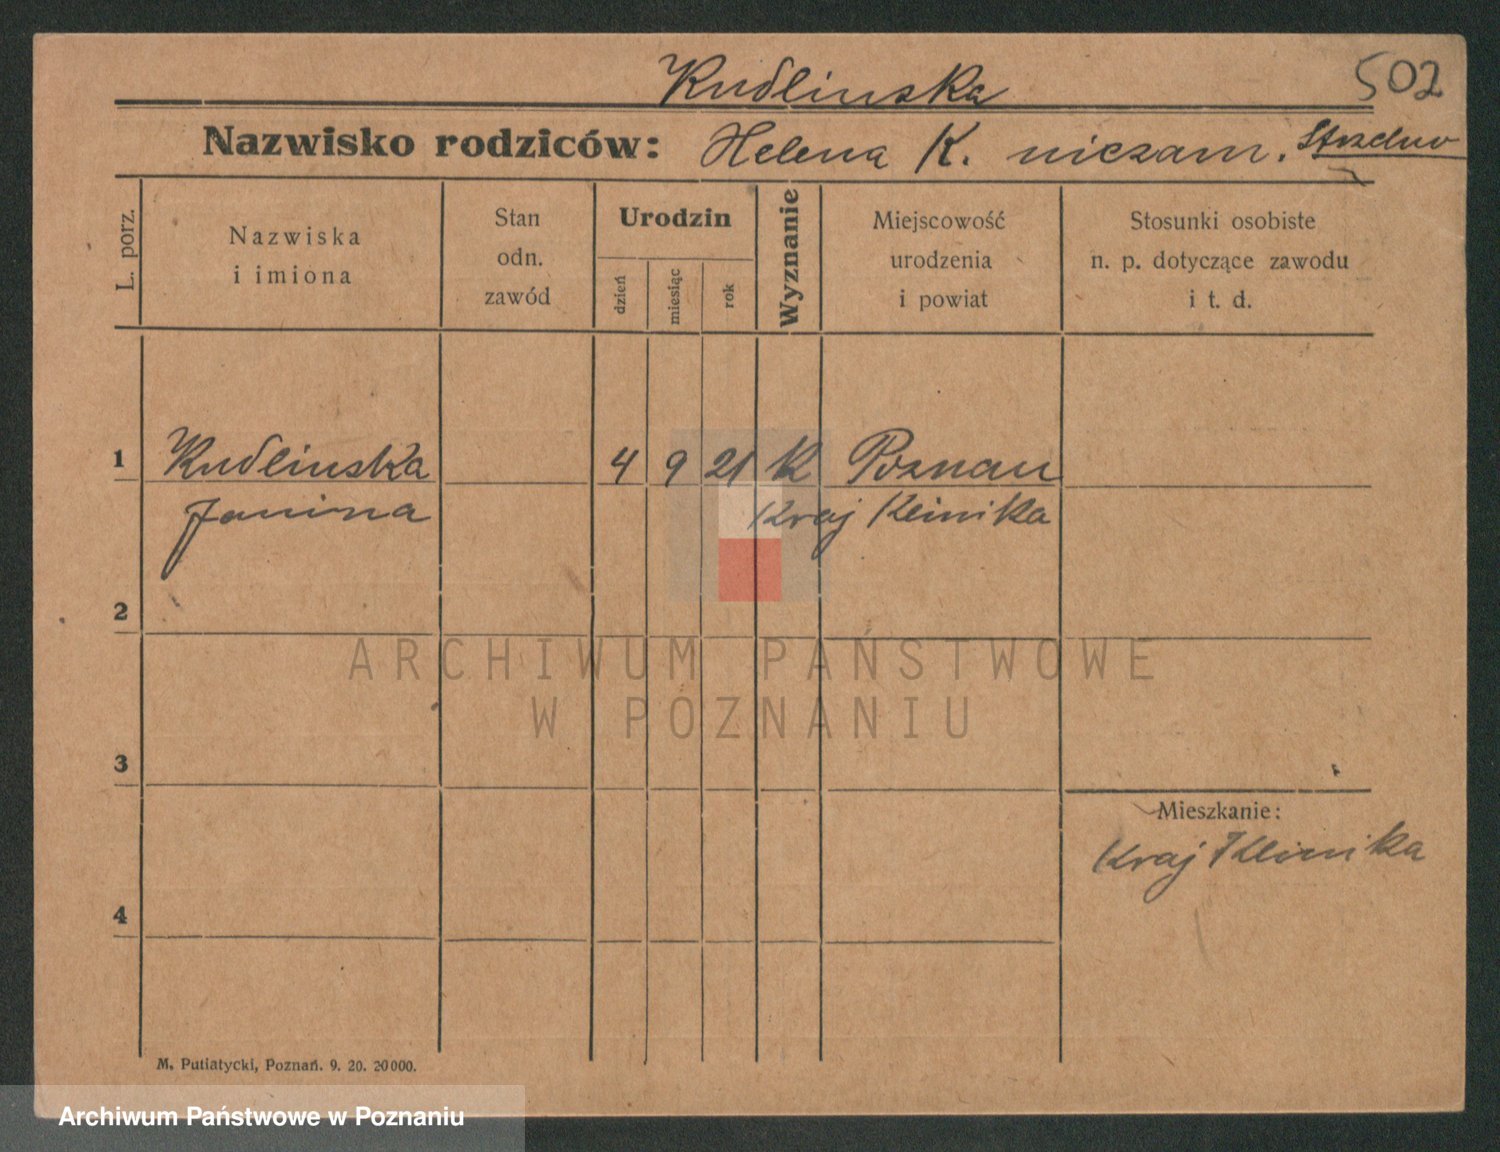 Kudlinska
502
Nazwisko rodziców: Helena K. niezam.
L. porz.
Nazwiska
i imiona
Stan
odn.
zawód
Urodzin
dzień
miesiąc
rok
Wyznanie
Miejscowość
urodzenia
i powiat
Stosunki osobiste
n. p. dotyczące zawodu
i t. d.
1 Kudlinska 4 9 21 K Poznan
Janina Kraj Klinika
2
ARCHIWUM PAŃSTWOWE
W POZNANIU
3
Mieszkanie:
Kraj Klinika
4
M. Putiatycki, Poznań. 9. 20. 20000.
Archiwum Państwowe w Poznaniu